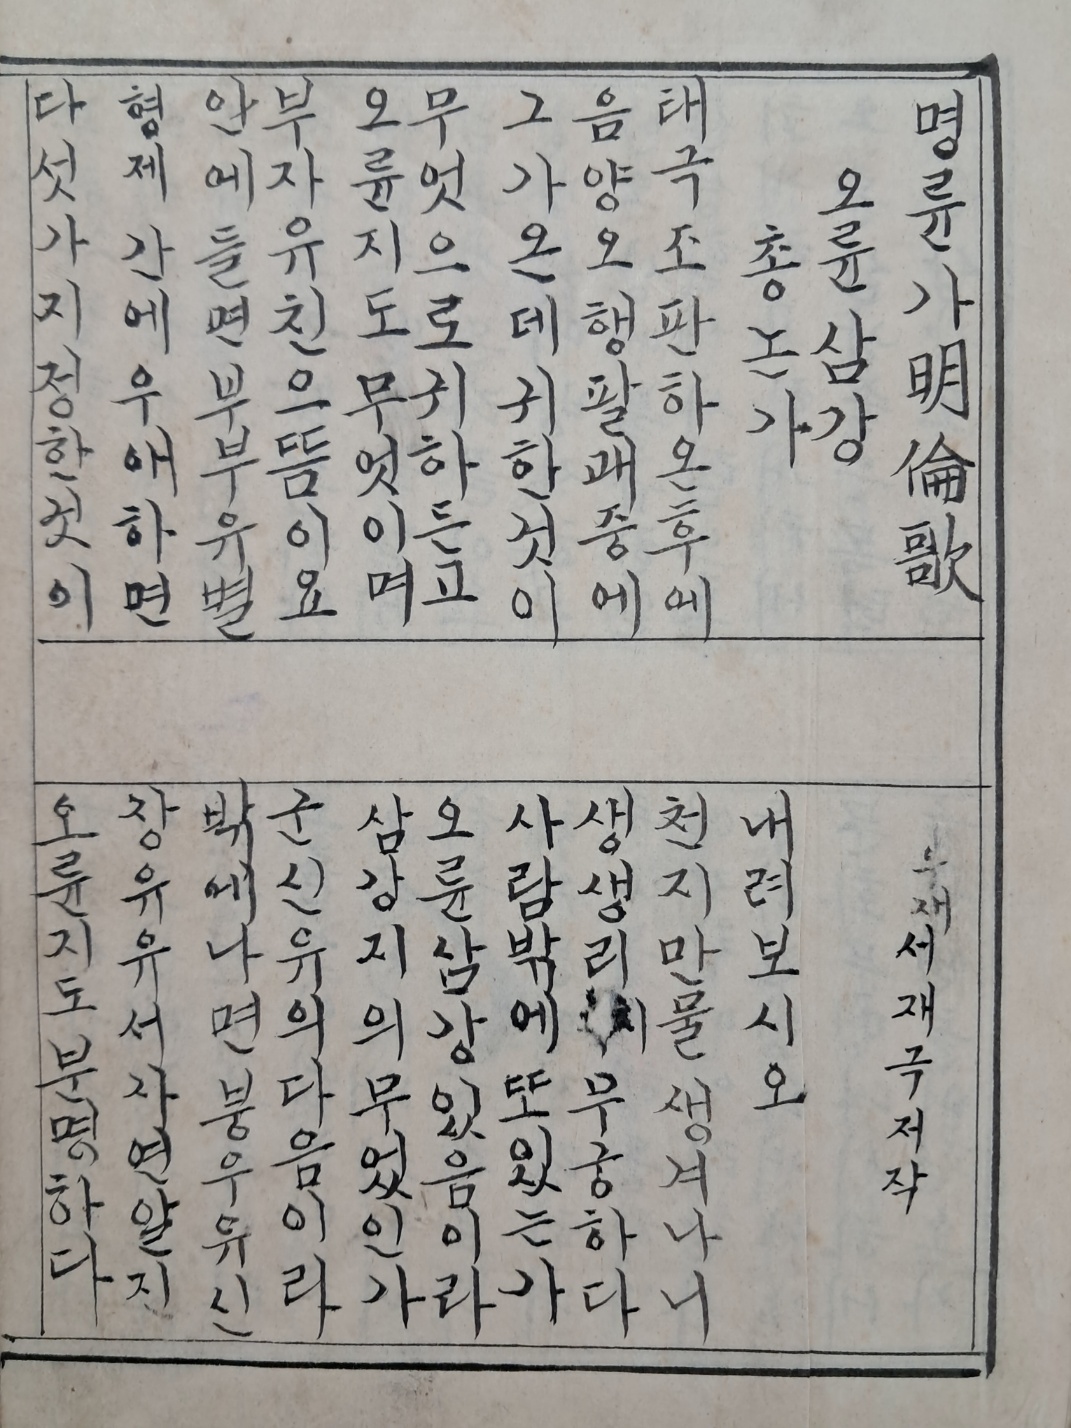 명륜가明倫歌
재서재극저작
오륜삼강
총논가
내려보시오
태극조판하온후에
천지만물생겨나니
음양오행팔괘중에
생생리 무궁하다
그가온데귀한것이
사람밖에또있는가
무엇으로귀하든고
오륜삼강있음이라
오륜지도무엇이며
삼강지의무었인가
부자유친으뜸이요
군신유의다음이라
안에들면부부유별
밖에나면붕우유신
형제간에우애하면
장유유서자연알지
다섯가지정한것이
오륜지도분명하다